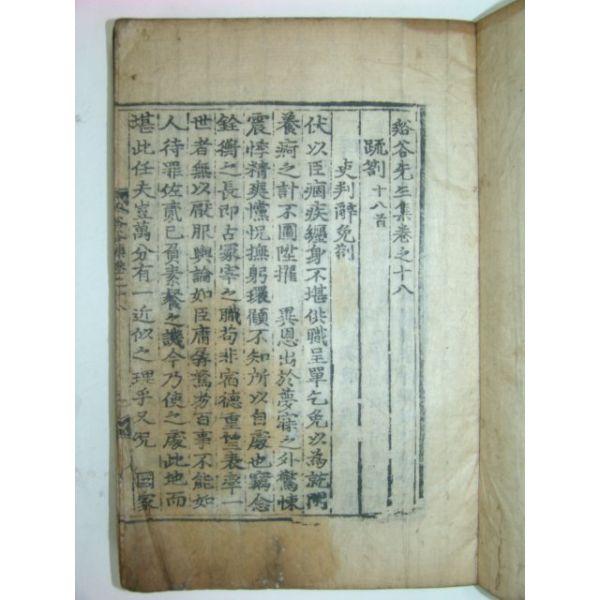 谿谷先生集卷之十八
疏劄十八首
吏判辭免劄
伏以臣痼疾纏身不堪供職呈單乞免以為就閑
養痾之計不圖陞擢 異恩出於夢寐之外驚悚
震悸精爽懭怳撫躬環顧不知所以自處也竊念
銓衡之長即古冢宰之職苟非宿德重望表率一
世者無以厭服輿論如臣庸孱駑劣百事不能如
人待罪佐貳已負素餐之譏今乃使之處此地而
堪此任夫豈萬分有一近似之理乎又況 國家